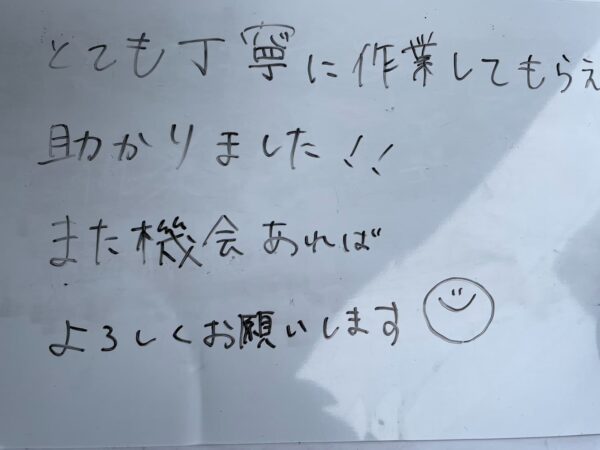 とても丁寧に作業してもらえ
助かりました!!
また機会あれば
よろしくお願いします